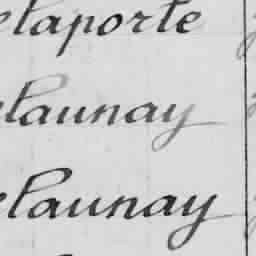 elaporte
elaunay
elaunay